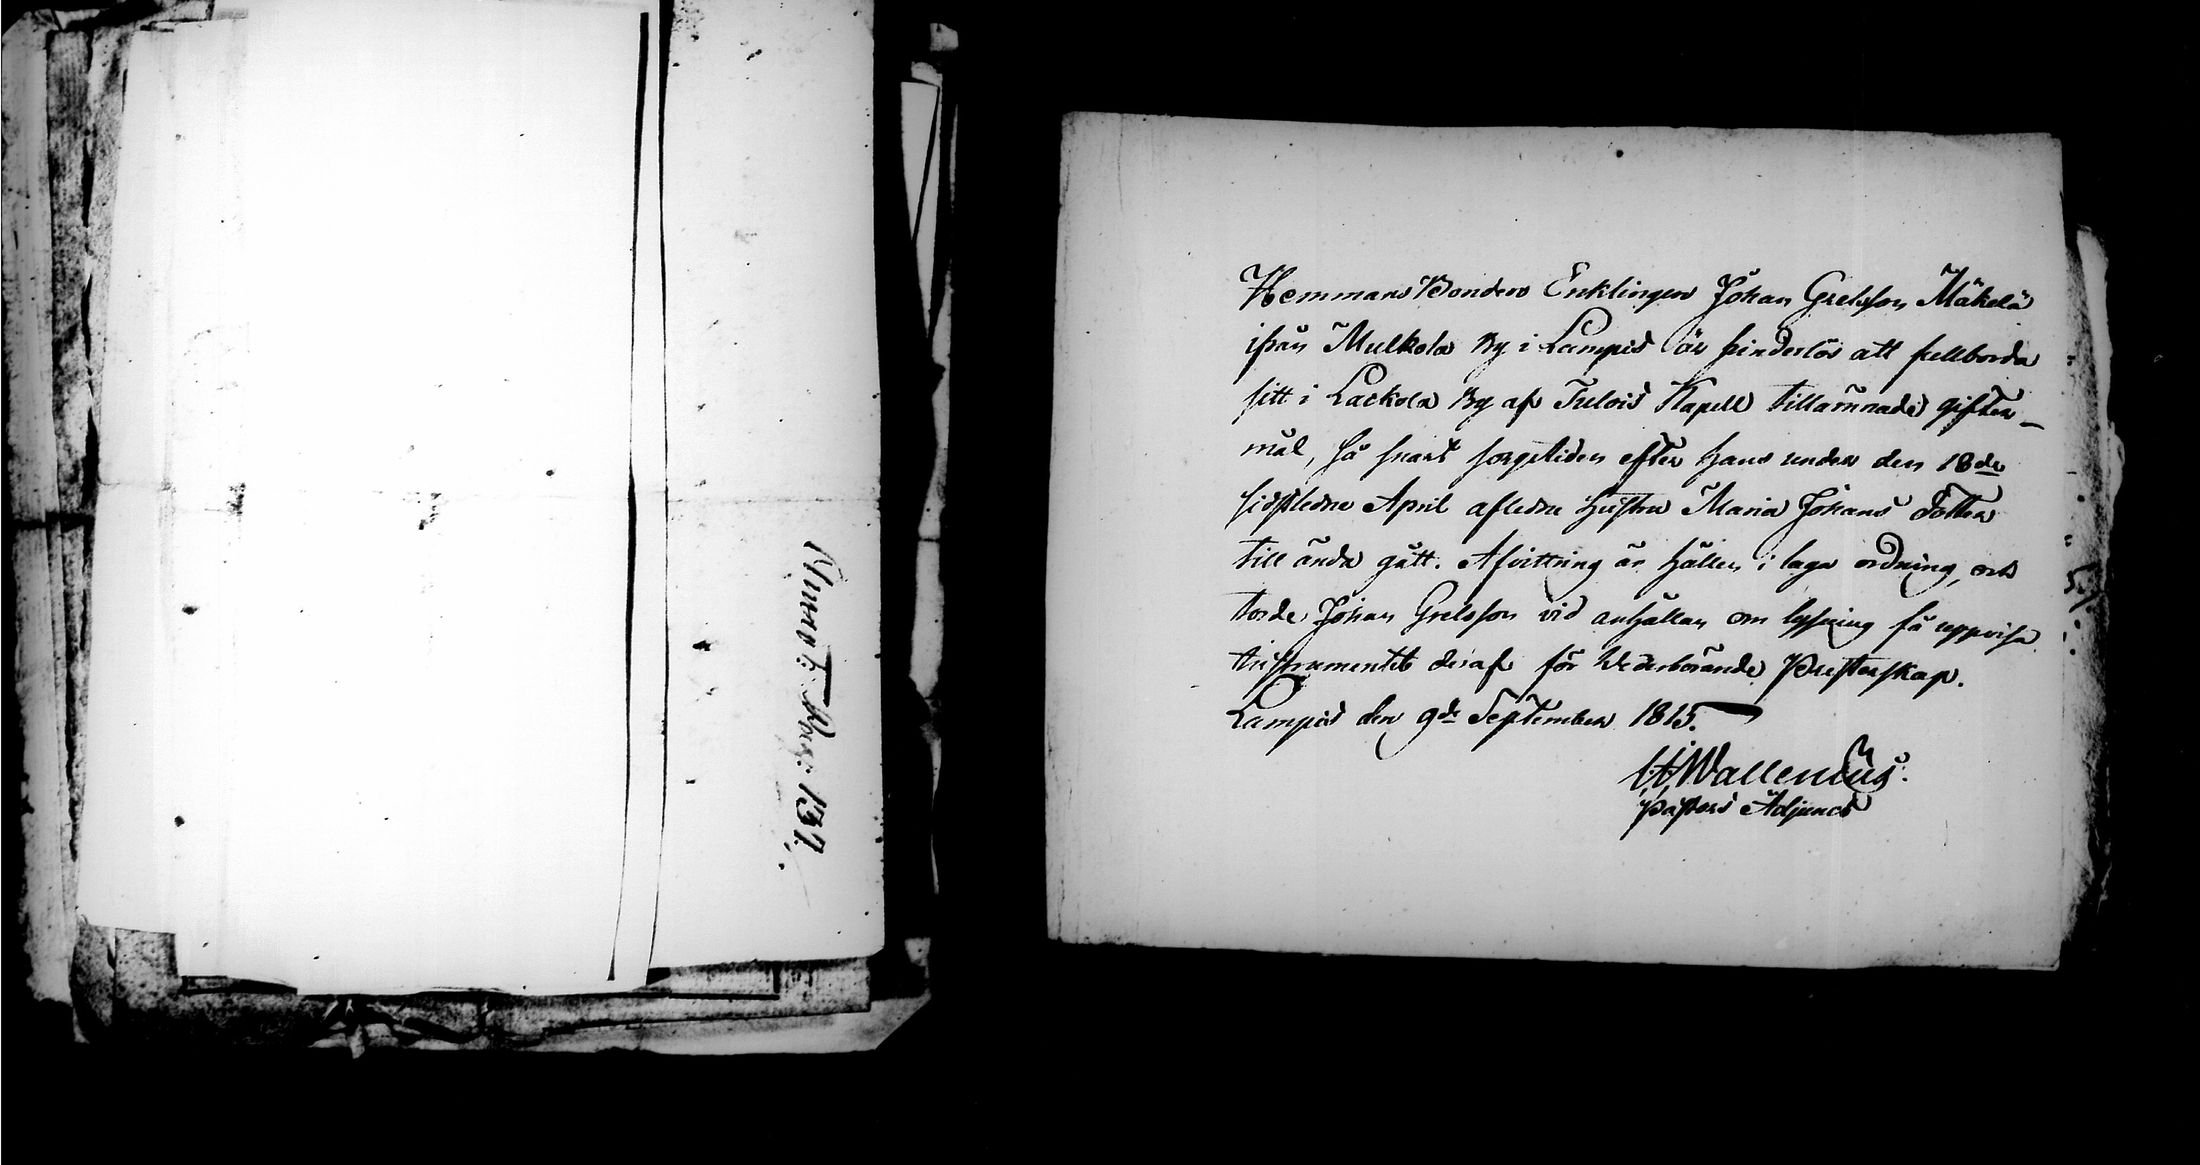 Hemmans Bonden Enklingen Johan Grelsson Mäkelä
ifrån Mulkola By i Lampis är hinderlös att fullborda
sitt i Lackola By af Tulois Kapell tillämnade gifter-
mål, så snart sorgetiden efter hans under den 18de
sidstledne April aflidne hustru Maria Johans Dotter
till ända gått. Afvittring är hållen i laga ordning, och
torde Johan Grelsson vid anhållan om lysning få uppvisa
Instrumentet deraf för Vederbörande Presterskap.
Lampis den 9de September 1815.
Wallenius.
Pastors Adjunct
137.